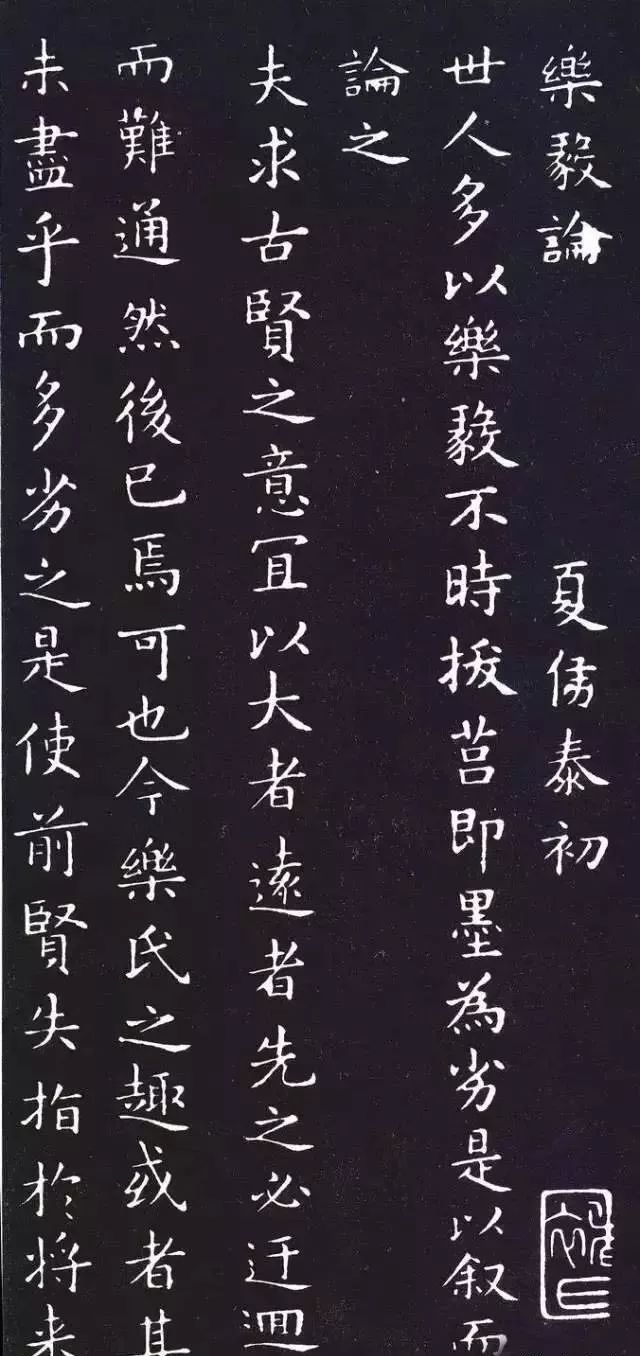 樂毅論
夏侯泰初
世人多以樂毅不時拔莒即墨為劣是以叙而
論之
夫求古賢之意宜以大者遠者先之必迂迴
而難通然後已焉可也今樂氏之趣或者其
未盡乎而多劣之是使前賢失指於将来